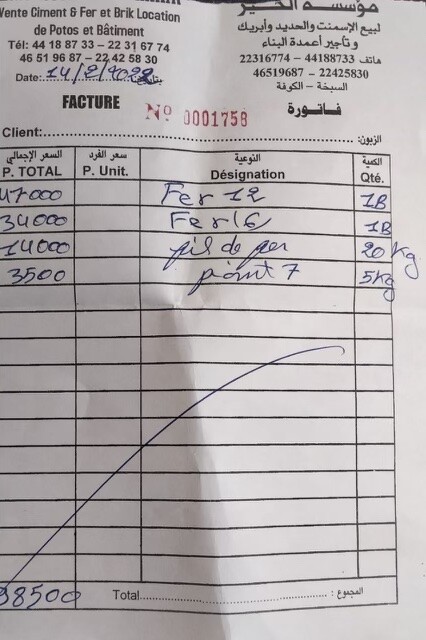 مؤسسة الخير
Vente Ciment & Fer et Brik Location
لبيع الإسمنت والحديد وأبريك
de Potos et Bâtiment
وتأجير أعمدة البناء
Tél: 44 18 87 33 – 22 31 67 74
هاتف 44188733 – 22316774
46 51 96 87 – 22 42 58 30
22425830 – 46519687
Date: 14/2/2022 بتاريخ
السبخة – الكوفة
FACTURE
Nº 0001758
فاتورة
Client: الزبون:
السعر الإجمالي سعر الفرد النوعية الكمية
P. TOTAL P. Unit. Désignation Qté.
47000 Fer 12 1B
34000 Fer 6 1B
14000 fil de fer 20 Kg
3500 point 7 5Kg
98500 Total المجموع :